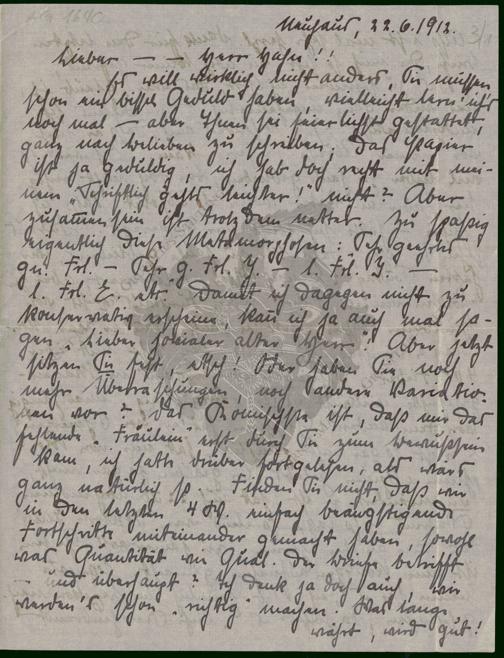 Neuhaus, 22.6.1912.
Lieber — — Herr Hahn!!
Es will wirklich nicht anders, Sie müssen
schon ein bissl Geduld haben, vielleicht lern' ich's
noch mal — aber Ihnen sei feierlichst gestattet,
ganz nach belieben zu schreiben. Das Papier
ist ja geduldig, ich hab doch recht mit mei-
nem „Schriftlich gehts leichter!" nicht? Aber
zusammen sein ist trotzdem netter. Zu spaßig
eigentlich diese Metamorphosen: Sehr geehrtes
gn. Frl. — Sehr g. Frl. J. — l. Frl. J. —
l. Frl. E. etc. Damit ich dagegen nicht zu
konservativ erscheine, kann ich ja auch mal sa-
gen „Lieber alter Herr". Aber jetzt
sitzen Sie fest, etsch! Oder haben Sie noch
mehr Überraschungen noch andere Variatio-
nen vor? Das Komischste ist, daß mir das
fehlende „Fräulein" erst durch Sie zum Bewußtsein
kam, ich hatte drüber fortgelesen, als wärs
ganz natürlich so. Finden Sie nicht, daß wir
in den letzten 4 W. einfach beängstigende
Fortschritte miteinander gemacht haben, sowohl
was Quantität wie Qual. der betrifft
— und überhaupt? Ich denk ja doch auch, wir
werden's schon „richtig" machen. Was lange
währt, wird gut!